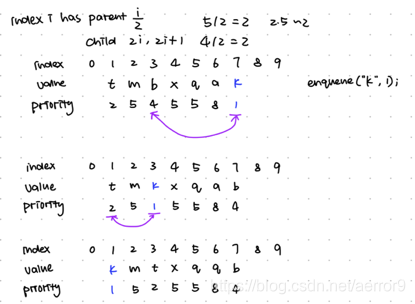 index i has parent i/2 5/2 = 2 2.5 ~2
child 2i, 2i+1 4/2 = 2
index 0 1 2 3 4 5 6 7 8 9
value t m b x q a k enqueue("k", 1);
priority 2 5 4 5 5 8 1
index 0 1 2 3 4 5 6 7 8 9
value t m k x q a b
priority 2 5 1 5 5 8 4
index 0 1 2 3 4 5 6 7 8 9
value k m t x q q b
priority 1 5 2 5 5 8 4
https://blog.csdn.net/aerror9